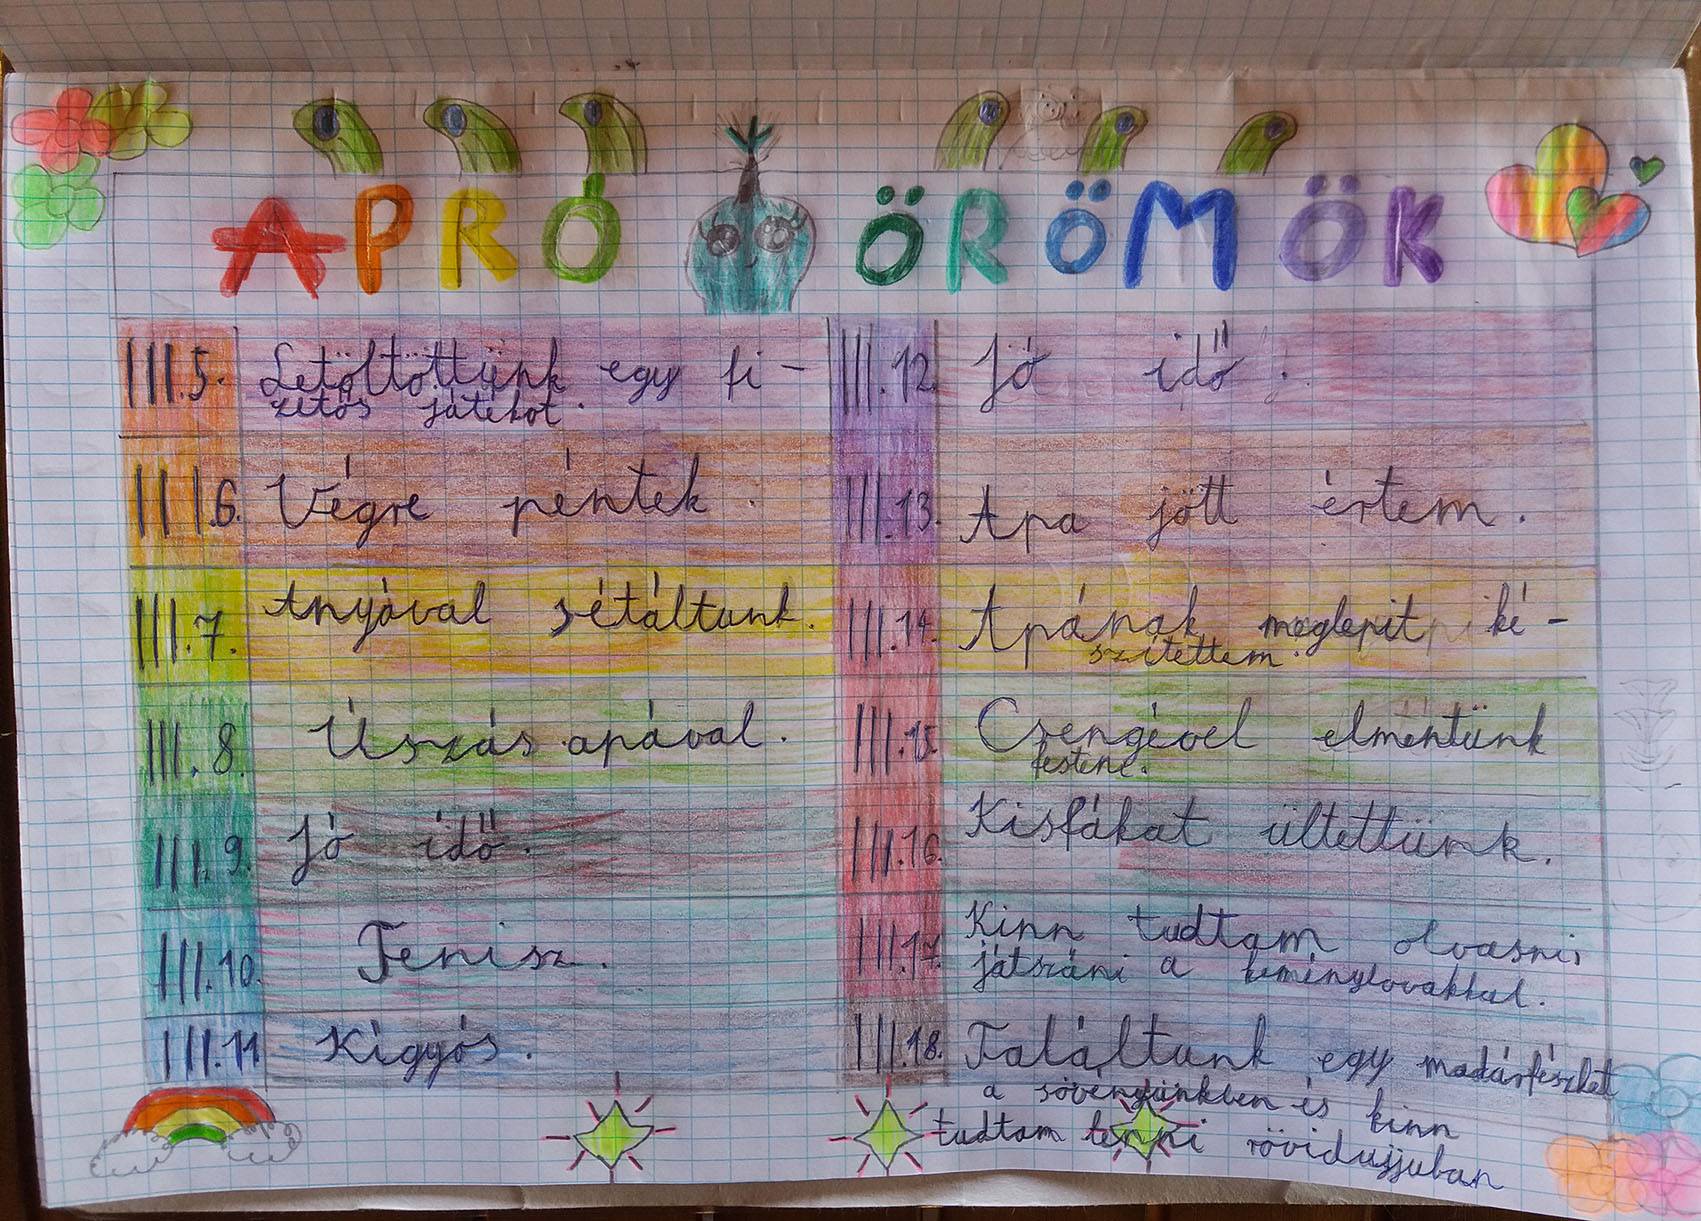 APRÓ ÖRÖMÖK
III.5. Letöltöttünk egy fi-
zetős játékot.
III.6. Végre péntek.
III.7. Anyával sétáltunk.
III.8. Úszás apával.
III.9. Jó idő.
III.10. Tenisz.
III.11 Kígyós.
III.12. Jó idő.
III.13. Apa jött értem.
III.14. Apának meglepit ké-
szítettem.
III.15 Csengével elmentünk
festeni.
III.16. Kisfákat ültettünk.
III.17. Kinn tudtam olvasni,
játszani a keménylovakkal.
III.18. Találtunk egy madárfészket
a sövényünkben és kinn
tudtam lenni rövidujjuban